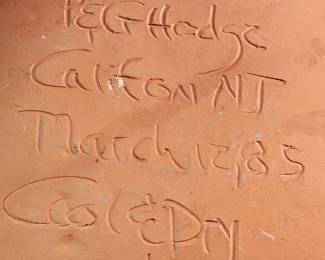 P&G Hodge
Califon NJ
March 12, 85
Cool & Dry